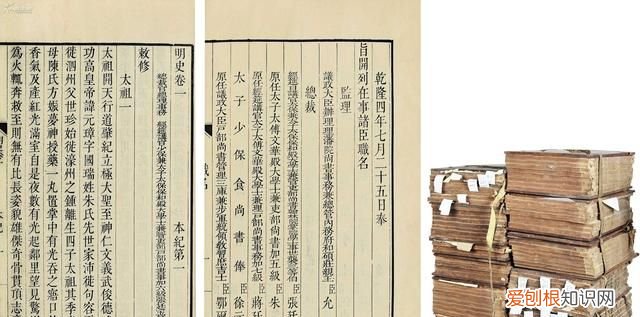 乾隆四年七月二十五日奉
旨開列在事諸臣職名
監理
議政大臣辦理理藩院尚書事務兼總管內務府和碩莊親王臣允
總裁
臣張廷
經筵講官太子太傅文華殿大學士兼吏部尚書 臣朱
原任經筵講官太子太傅文華殿大學士兼理戶部尚書事務加七級臣蔣廷
太子少保食尚書俸臣徐元
原任議政大臣戶部尚書管理三庫兼步軍統領教習庶吉士臣鄂爾
明史卷一 本紀第一
總裁官總理事務 經筵講官少保兼太子太保保和殿大學士兼管吏部戶部尚書事加六級
敕修
太祖一
太祖開天行道肇紀立極大聖至神仁文義武俊德
功高皇帝諱元璋字國瑞姓朱氏先世家沛徙句容
徙泗州父世珍始徙濠州之鍾離生四子太祖其季
母陳氏方娠夢神授藥一丸置掌中有光吞之寤口
香氣及產紅光滿室自是夜數有光起鄰里望見驚
為火輒奔救至則無有比長姿貌雄傑奇骨貫頂志
爱刨根知识网